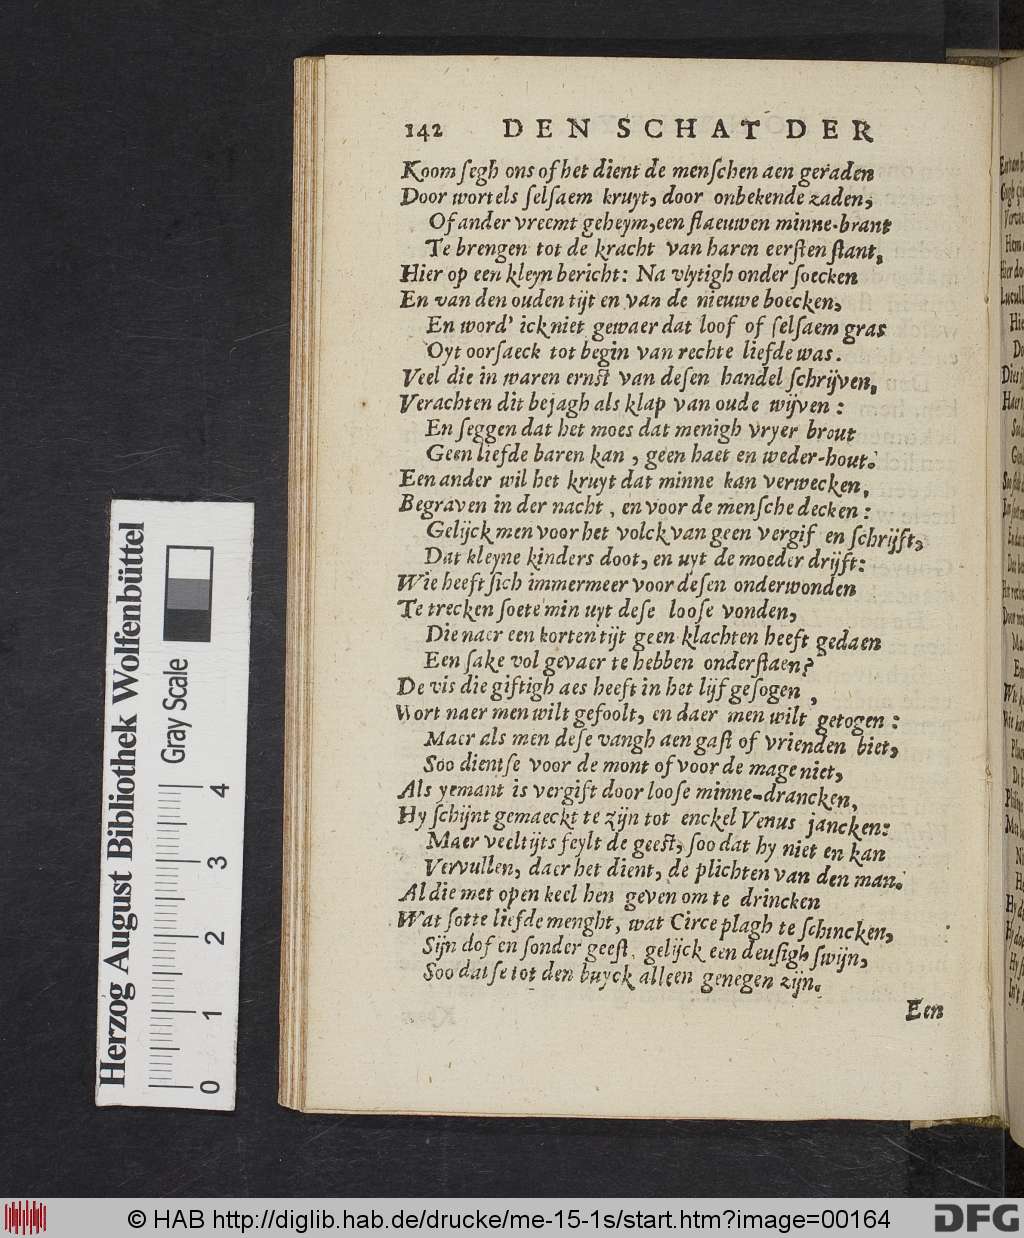 142 DEN SCHAT DER
Koom ſegh ons of het dient de menſchen aen geraden
Door wortels ſelſaem kruyt, door onbekende zaden,
Of ander vreemt geheym, een flaeuwen minne-brant
Te brengen tot de kracht van haren eerſten ſtant,
Hier op een kleyn bericht: Na vlytigh onder ſoecken
En van den ouden tijt en van de nieuwe boecken,
En word' ick niet gewaer dat loof of ſelſaem gras
Oyt oorſaeck tot begin van rechte liefde was.
Veel die in waren ernſt van deſen handel ſchrijven,
Verachten dit bejagh als klap van oude wijven:
En ſeggen dat het moes dat menigh vryer brout
Geen liefde baren kan, geen haet en weder-hout.
Een ander wil het kruyt dat minne kan verwecken,
Begraven in der nacht, en voor de menſche decken:
Gelijck men voor het volck van geen vergif en ſchrijft,
Dat kleyne kinders doot, en uyt de moeder drijft:
Wie heeft ſich immermeer voor deſen onderwonden
Te trecken ſoete min uyt deſe looſe vonden,
Die naer een korten tijt geen klachten heeft gedaen
Een ſake vol gevaer te hebben onderſtaen?
De vis die giftigh aes heeft in het lijf geſogen,
Wort naer men wilt gefoolt, en daer men wilt getogen:
Maer als men deſe vangh aen gaſt of vrienden biet,
Soo dientſe voor de mont of voor de mage niet,
Als yemant is vergift door looſe minne-drancken,
Hy ſchijnt gemaeckt te zijn tot enckel Venus jancken:
Maer veeltijts feylt de geeſt, ſoo dat hy niet en kan
Vervullen, daer het dient, de plichten van den man.
Al die met open keel hen geven om te drincken
Wat ſotte liefde menght, wat Circe plagh te ſchincken,
Sijn dof en ſonder geeſt, gelijck een deuſigh ſwijn,
Soo datſe tot den buyck alleen genegen zijn.
Een
Herzog August Bibliothek Wolfenbüttel
Gray Scale
0 1 2 3 4
© HAB http://diglib.hab.de/drucke/me-15-1s/start.htm?image=00164
DFG